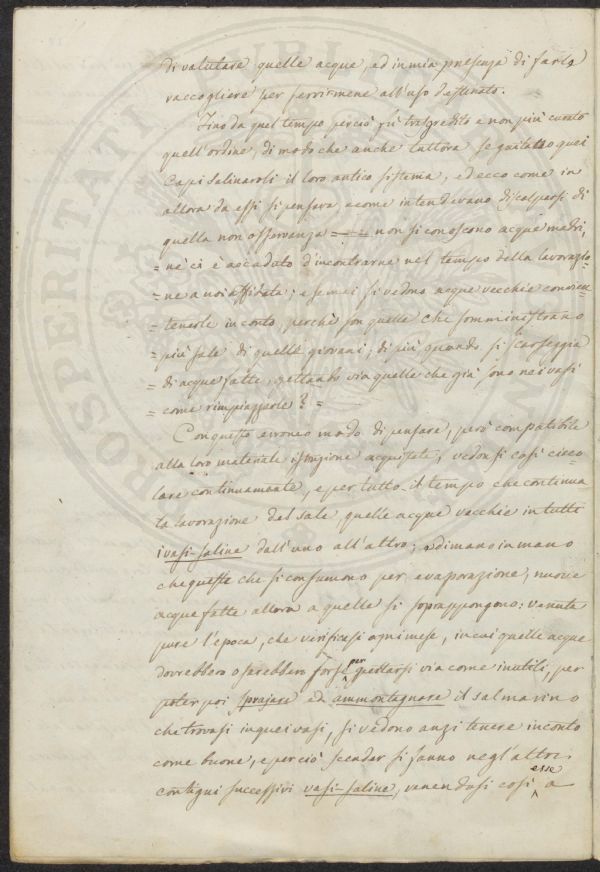 di valutare quelle acque, ed in mia presenza di farle
raccogliere per servirmene all'uso destinato.
Fino da quel tempo perciò fu trasgredito e non più curato
quell'ordine, di modo che anche tuttora seguitano quei
Capi salinaroli il loro antico sistema, ed ecco come in
allora da essi si pensava e come intendevano discolparsi di
quella non osservanza = non si conoscono acque madri,
= nè ci è accaduto d'incontrarne nel tempo della lavorazio
= ne a noi affidata; e se mai si vedono acque vecchie convien
= tenerle in conto, perchè son quelle che somministrano
= più sale di quelle giovani; di più quando si scarseggia
= di acque fatte, gettando via quelle che già sono nei vasi
= come rimpiazzarle? =
Con questo erroneo modo di pensare, però compatibile
alla loro materiale istruzione acquistata, vedonsi così circo
lare continuamente, e per tutto il tempo che continua
la lavorazione del sale quelle acque vecchie in tutti
i vasi-saline dall'uno all'altro; e di mano in mano
che queste che si consumono per evaporazione, nuove
acque fatte allora a quelle si soprappongono: venuta
pure l'epoca, che verificasi ogni mese, in cui quelle acque
dovrebbero o sarebbero forse per gettarsi via come inutili, per
poter poi sprajare ed ammontagnare il sal marino
che trovasi in quei vasi, si vedono anzi tenere in conto
come buone, e perciò scender si fanno negl'altri
contigui successivi vasi-saline, venendosi così esse a